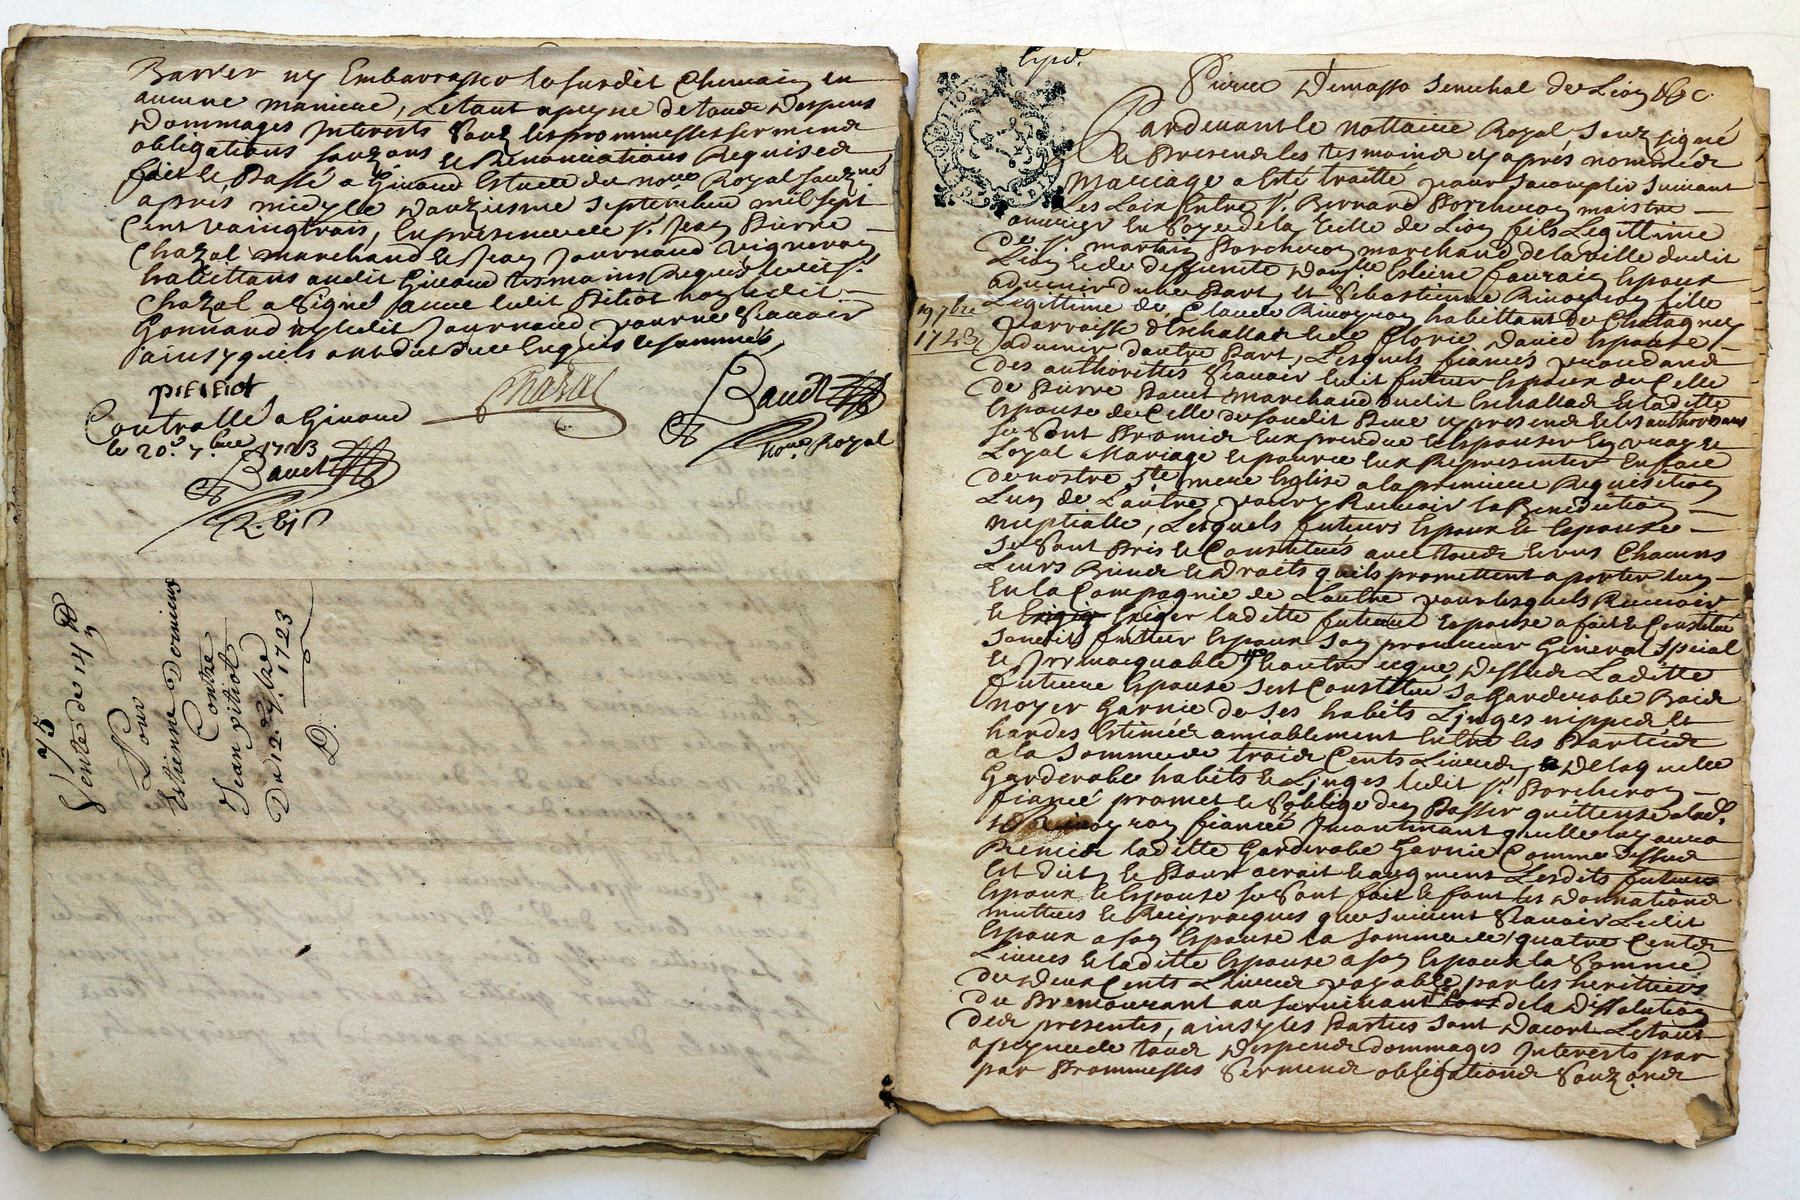 Barrer ny Embarrasser le susdit Chemain en
aucune maniere, Letout apeyne detouds Despens
Dommages Interests Souz les prommesses serments
obligations souzons et Renonciations Requises
fait et Passé a Givord Estude du no.re Royal souzné
apres midy le Douziesme Septembre mil sept
Cent vaingtrois, En presence de s.r Jean Pierre
Chazal marchand et Jean Journoud vigneron
habittans audit Givord tesmoins Requis ledit s.r
Chazal a Signé avec ledit Pitiot non ledit
Gonnand ny ledit Journoud pour ne Scavoir
ainsy quils ont dit de ce Enquis et sommés,
Chazal
Baudt
no.re Royal
Controllé a Givord
le 20.e 7.bre 1723
Baudt
75
Vente de 14
Pour
Estienne
Contre
Jean pitiot
Du 12. 7.bre 1723
Pierre Dumasso Senechal de Lion &c.
Pardevant le nottaire Royal Souzsigné
et Presends les tesmoins cy après nommés
Mariage a esté traitté pour sacomplir suivant
les Loix Entre s.r Bernard Porcheron maistre
ouvrier En Soye de la Ville de Lion fils Legittime
de s.r martin Porcheron marchand de la ville dudit
Lion et de deffunte Dam.lle Esleine faurain Epoux
advenir dune Part, et Sebastienne Rivoyron fille
Legittime de Claude Rivoyron habittant de Chatagney
19 7bre
1723
Parroisse dEschallas et de Florie David Espouse
advenir dautre Part, Lesquels fiancés procedand
des authorittés Scavoir ledit futur Espoux de Celle
de Pierre marchand dudit Eschallas et ladite
Espouse de Celle de sondit Pere cy present et les authorisans
se Sont Promis Eux prendre et Espouser En vray et
Loyal Mariage et pource Eux Representer En face
de nostre ste mere Eglise a la premiere Requisition
Lun de Lautre pour y Recevoir la Benediction
nuptialle, Lesquels futurs Espoux et Espouse
se Sont Pris et Constitués avec touds et uns Chacuns
Leurs Biends et Droits quils promettent aporter Lun
En la Compagnie de Lautre pour lesquels Recevoir
et Exiger ladite future Espouse a fait et Constitué
sondit futtur Espoux son procureur General Special
et Irrevocquable outre ceque Dessuds Ladite
future Espouse sest Constitué sa Garderobe Bois
noyer Garnie de ses habits Linges nippes et
hardes Estimée amiablement Entre les Parties
a la Somme de trois Cents Livres, Delaquelle
Garderobe habits et Linges ledit s.r Porcheron
fiancé promet et Soblige den Passer quittense alad.
Rivoyron fiancée Incontinant quelle luy aura
Remise ladite Garderobe Garnie Comme dessuds
Est dict, et Pour acroit et augment Lesdits futurs
Espoux et Espouse se Sont fait et font les Donnations
muttues et Reciprocques que suivent Scavoir Ledit
Espoux a son Espouse la somme de quatre Cents
Livres et ladite Espouse a son Espoux la Somme
de Deux Cents Livres payable par les heritiers
du Premourant au survivant Lors de la Dissolution
des presentes, ainsy les Parties sont Dacort Letout
apeyne de touds Despends dommages Interests par
par Prommesses Serments obligations Souzonds